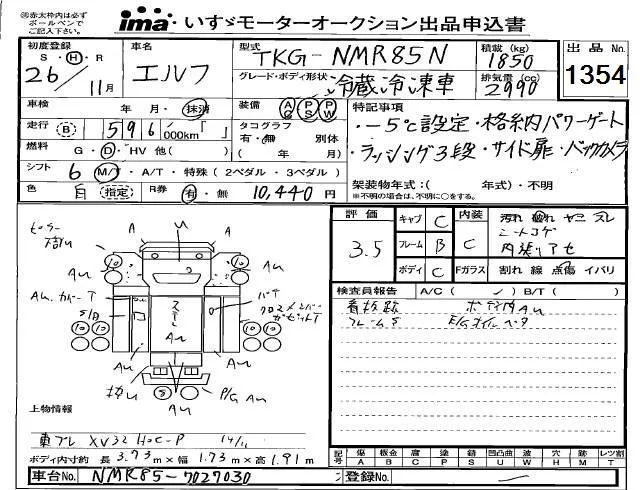 ㊟赤太枠内は必ず
ボールペンで
ご記入下さい。
ima いすゞモーターオークション出品申込書
初度登録
S・H・R
26/11月
車名
エルフ
型式
TKG-NMR85N
グレード・ボディ形状
冷蔵冷凍車
積載(kg)
1850
排気量(cc)
2990
出品No.
1354
車検
年 月・抹消
装備 AC PS PW
特記事項
・-5℃設定・格納パワーゲート
・ラッシング3段・サイド扉・バックカメラ
走行 B 596,000km
タコグラフ
有・無 別体
( 年 月)
燃料
G・D・HV 他( )
シフト
6 M/A・T・特殊(2ペダル・3ペダル)
架装物年式:( 年式)・不明
※不明の場合は、不明に○をする。
色
白 指定
R券
有・無
10,440円
評価
3.5
キャブ C
フレーム B
ボディ C
内装 C
Fガラス
汚れ 破れ ヤニ スレ
内張りアセ
割れ 線 点傷 イバリ
検査員報告 A/C( ) B/T( )
看板跡 ボディ内AU
フレームS E/Gオイル
A U A
AU
AU
AU.カバーT
S/D
AU
AU
AU
P/G AU
AU
上物情報
東プレ XV32 HOC-P 14/11
ボディ内寸約 長3.73m×幅1.73m×高1.91m
記号 傷A 板金B 腐C 塗P 錆S 凹凸曲U 波W 穴H 跡M レツ割T
車台No. NMR85-7027030
登録No.